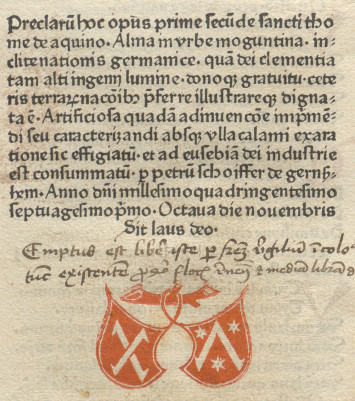 Preclarū hoc opus prime secūde sancti tho
me de aquino. Alma in vrbe moguntina. in-
clite nationis germanice. quā dei clementia
tam alti ingenij lumine. donoqꝫ gratuitu. cete
ris terraꝝ nacōibꝫ p̄ferre illustrareqꝫ digna-
ta ē. Artificiosa quadā adinuencōe imp̄mē-
di seu caracterizandi absqꝫ vlla calami exara
tione sic effigiatū. et ad eusebiā dei industrie
est consummatū. ꝑ petrū schoiffer de gernsz-
hem. Anno dn̄i millesimo quadringentesimo
septuagesimop̄mo. Octaua die nouembris
Sit laus deo.
Emptus est liber iste ꝑ frem
tunc existente